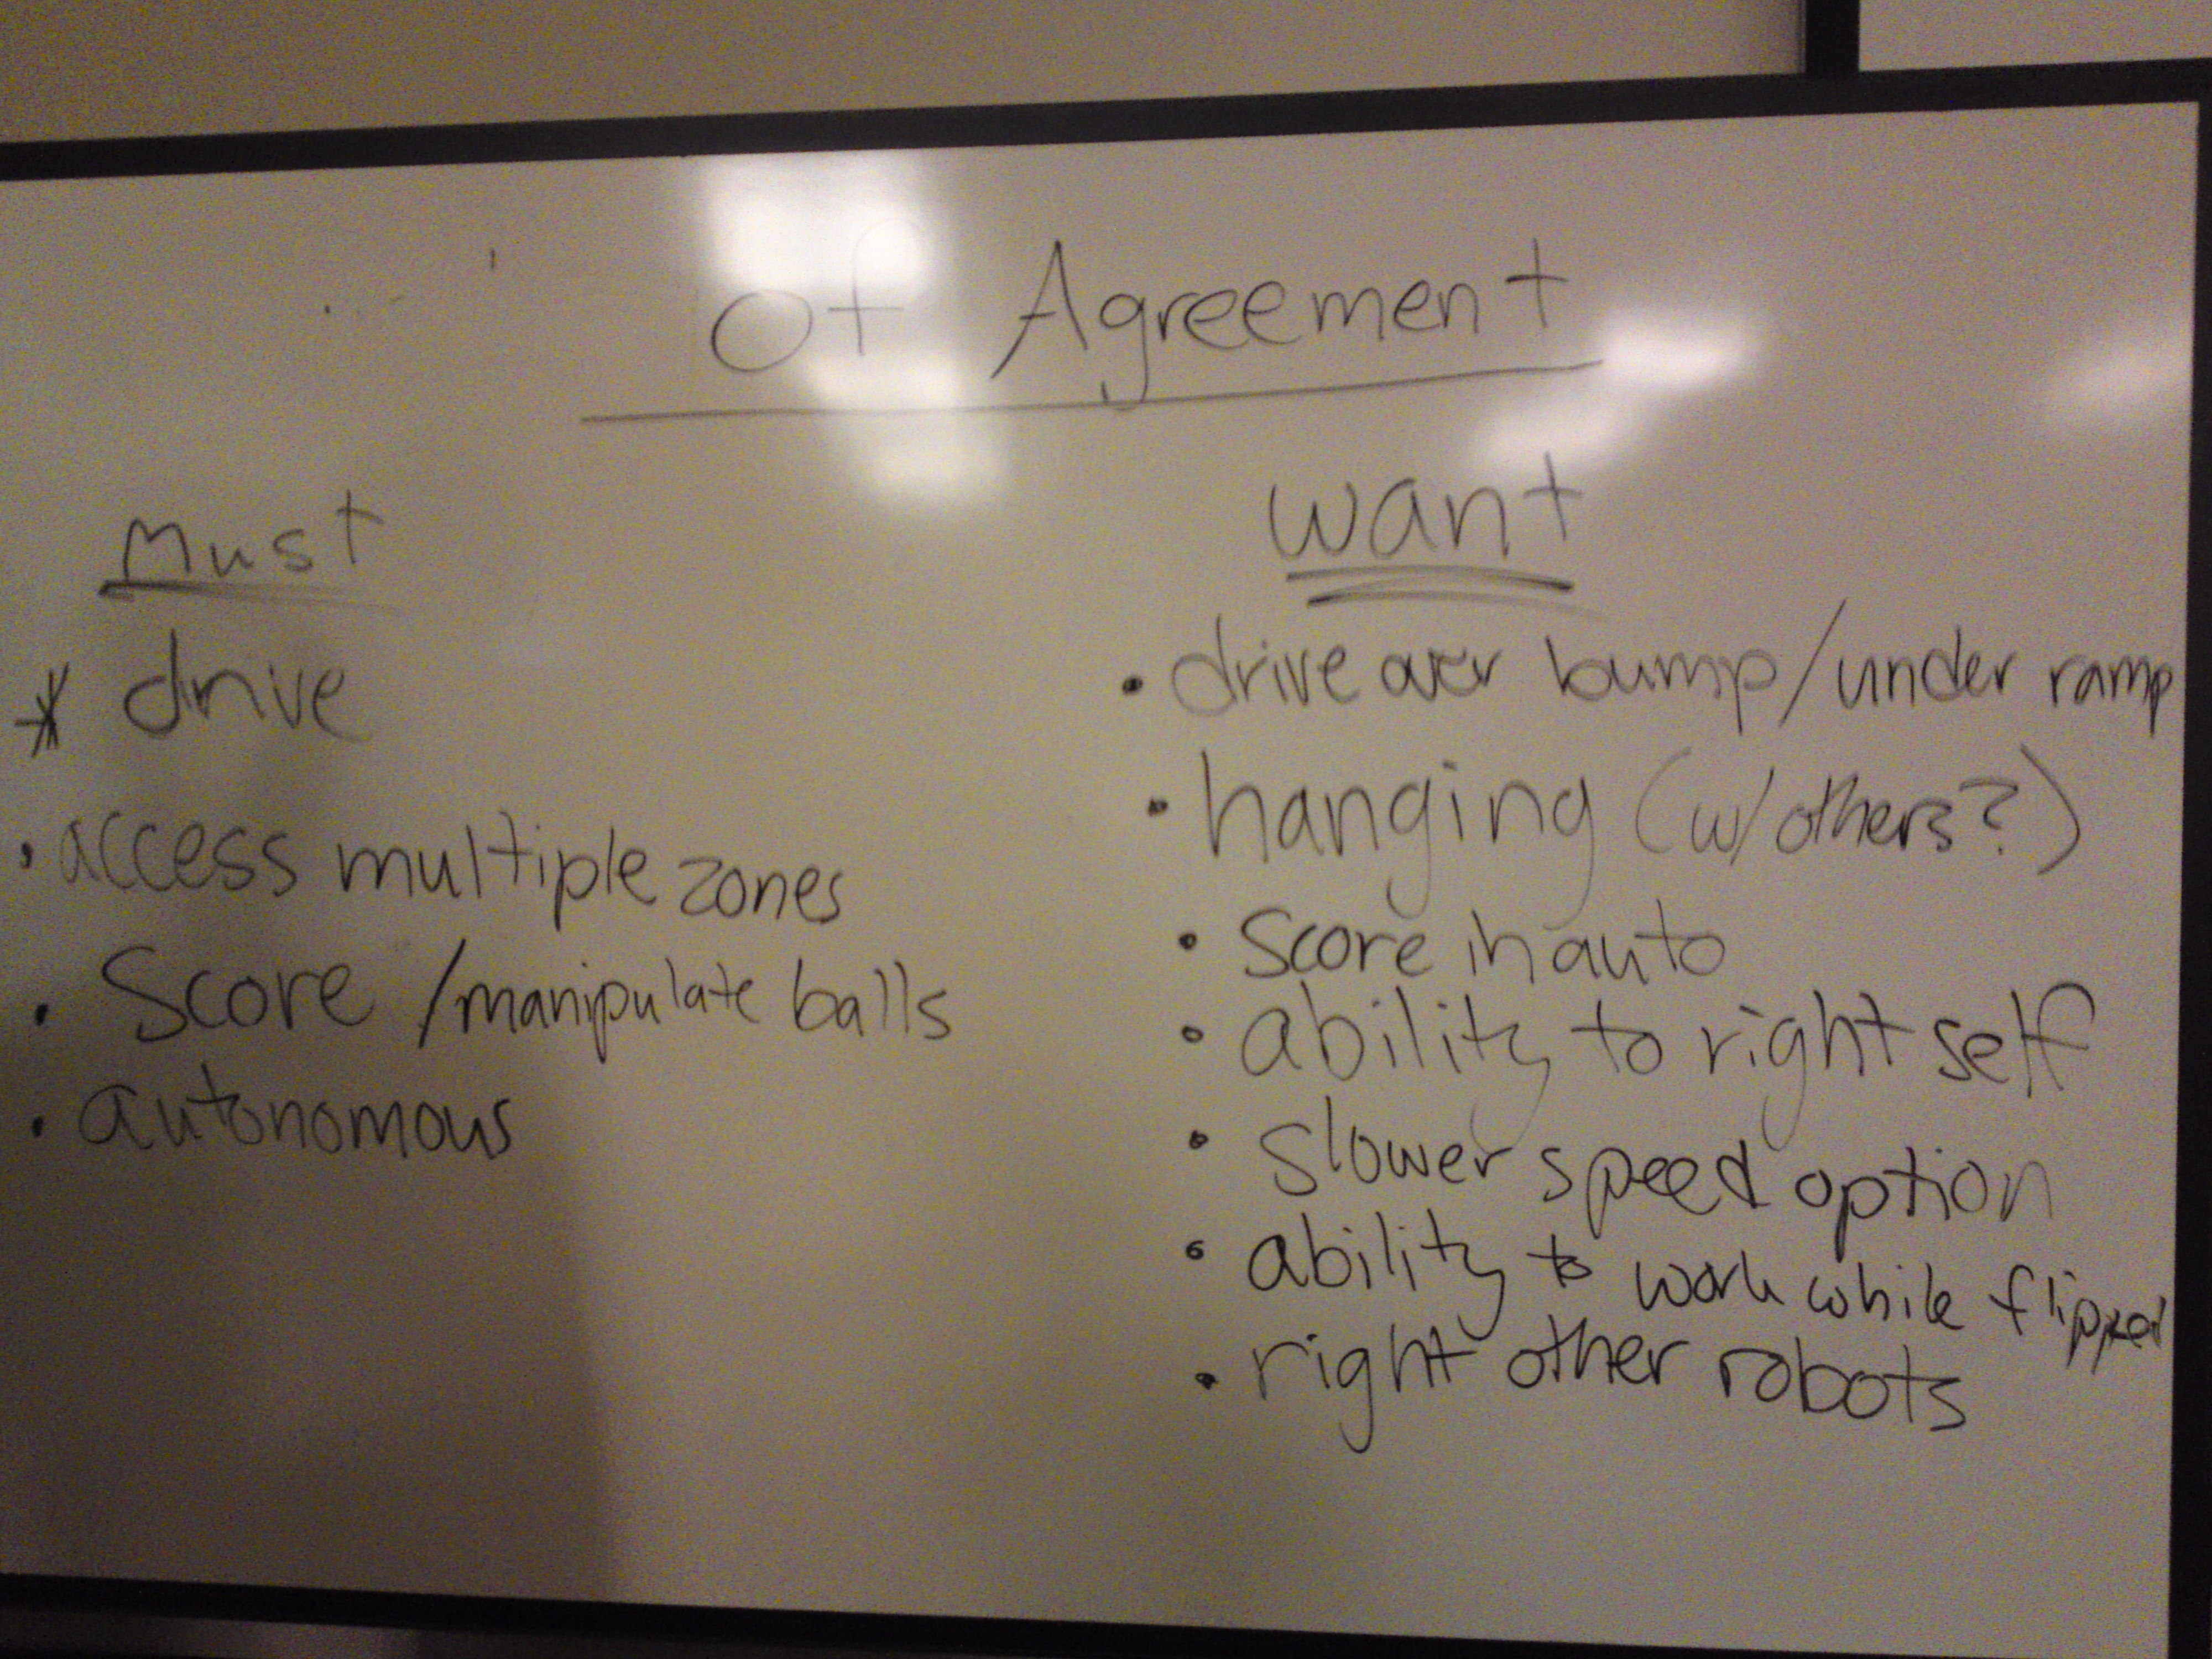 Of Agreement
Must
* drive
• access multiple zones
• Score /manipulate balls
• autonomous
want
• drive over bump/under ramp
• hanging (w/others?)
• Score in auto
• ability to right self
• slower speed option
• ability to work while flipped
• right other robots